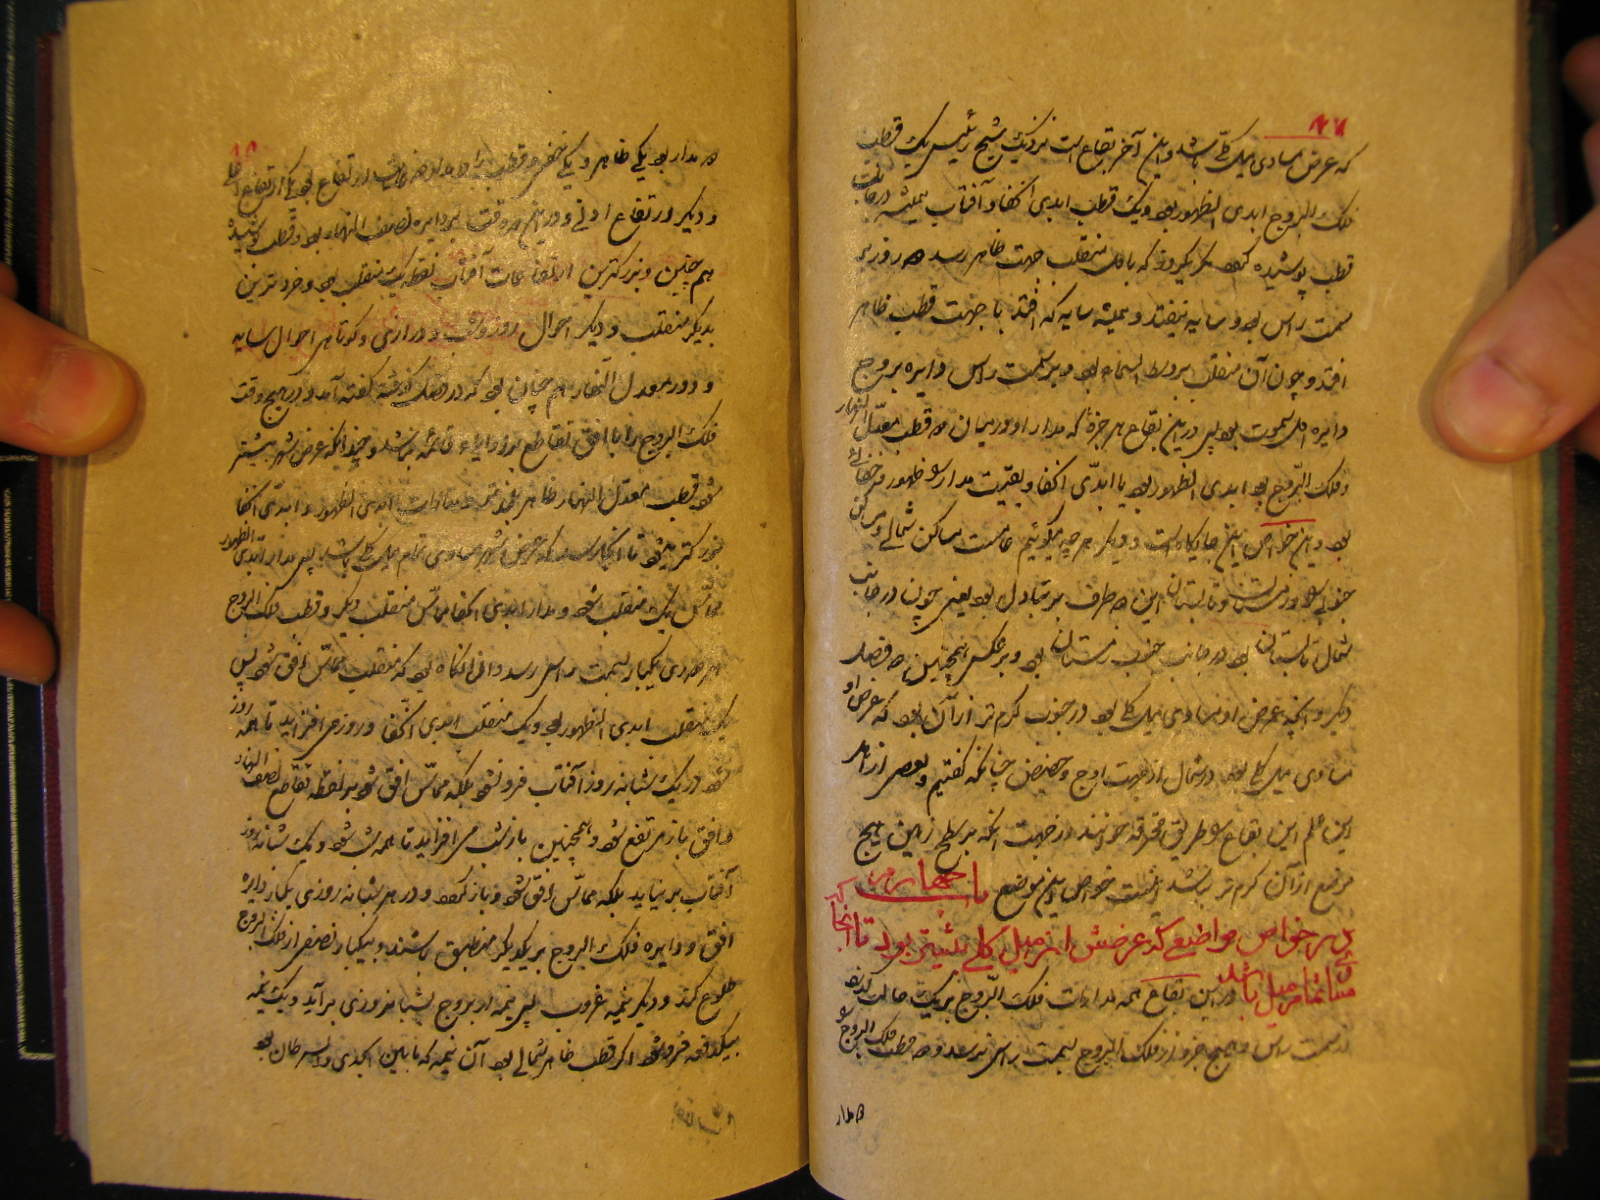 که عرض مساوی میل کلی باشد و این آخر بقاع است نزدیک شیخ رئیس یک قطب
فلک البروج ابدی الظهور بود و یک قطب ابدی الخفا و آفتاب همیشه در جانب
قطب پوشیده گردد مگر یکروز که باول منقلب جهت ظاهر رسد هر روز بر
سمت راس بود و سایه نیفتد و همیشه سایه که افتد با جهت قطب ظاهر
افتد و چون آن منقلب بر وسط السماء بود و بر سمت راس دایره بروج
دایره اول سموت بود پس در این بقاع هر جزو که مدار او در میان دو قطب معدل النهار
و فلک البروج بود ابدی الظهور بود یا ابدی الخفا و بقیت مدار
بود و این خواص این جایگاه است و دیگر هر چه میگوئیم خاصیت مساکن شمالی
جنوبی و زمستان و تابستان این دو طرف بر تبادل بود یعنی چون در جانب
شمال تابستان بود در جانب جنوب زمستان بود و بر عکس همچنین دو فصل
دیگر و آنچه عرض او مساوی میل کلی بود در جنوب گرم تر از آن بود که عرض او
مساوی میل کلی بود در شمال از جهت اوج و حضیض چنانکه گفتیم و بعضی از اهل
این علم این بقاع را طریق محترقه خوانند از جهت آنکه بر سطح زمین هیچ
موضع از آن گرم تر نباشد اینست خواص این موضع باب چهارم
در خواص مواضعی که عرضش از میل کلی بیشتر بود تا آنجا که
تمام میل باشد در این بقاع همه مدارات فلک البروج بر یک حالت گذرد
از سمت راس و هیچ جزو از فلک البروج بسمت راس نرسد و دو قطب فلک البروج
دو مدار
دو مدار بود یکی ظاهر و یکی خفی و قطب ظاهر را دو ارتفاع بود یکی ارتفاع اعلی
و دیگر ارتفاع ادنی و در این دو وقت بر دایره نصف النهار بود و قطب پوشیده
هم چنین و بزرگترین ارتفاعات آفتاب نقطه یک منقلب بود و خردترین
بدیگر منقلب و دیگر احوال روز و شب و درازی و کوتاهی احوال سایه
و دور معدل النهار هم چنان بود که در فصل گذشته گفته آمد و در هیچ وقت
فلک البروج را با افق تقاطع بر زوایاء قائمه نباشد و چندانکه عرض شهر بیشتر
شود قطب معدل النهار ظاهر بلندتر و مدارات ابدی الظهور و ابدی الخفا
بزرگتر شود تا آنجا رسد که عرض شهر مساوی تمام میل کلی باشد پس مدار ابدی الظهور
مماس یک منقلب شود و مدار ابدی الخفا مماس منقلب دیگر و قطب فلک البروج
هر دوری یکبار بسمت راس رسد و آن آنگاه بود که منقلب مماس افق شود پس
یک منقلب ابدی الظهور بود و یک منقلب ابدی الخفا و روز می افزاید تا همه روز
شود در یک شبانه روز آفتاب فرو نشود بلکه مماس افق شود بر نقطه تقاطع نصف النهار
و افق باز مرتفع شود و همچنین باز شب می افزاید تا همه شب شود و یک شبانه روز
آفتاب بر نیاید بلکه مماس افق شود و باز گردد و در هر شبانه روزی یکبار دایره
افق و دایره فلک البروج بر یکدیگر منطبق باشند و بیکبار نصفی از فلک البروج
طلوع کند و دیگر نیمه غروب پس نیمه از بروج بشبانه روزی بر آید و یک نیمه
بیکدفعه فرو شود اگر قطب ظاهر شمالی بود آن نیمه که مابین الجدی و السرطان بود